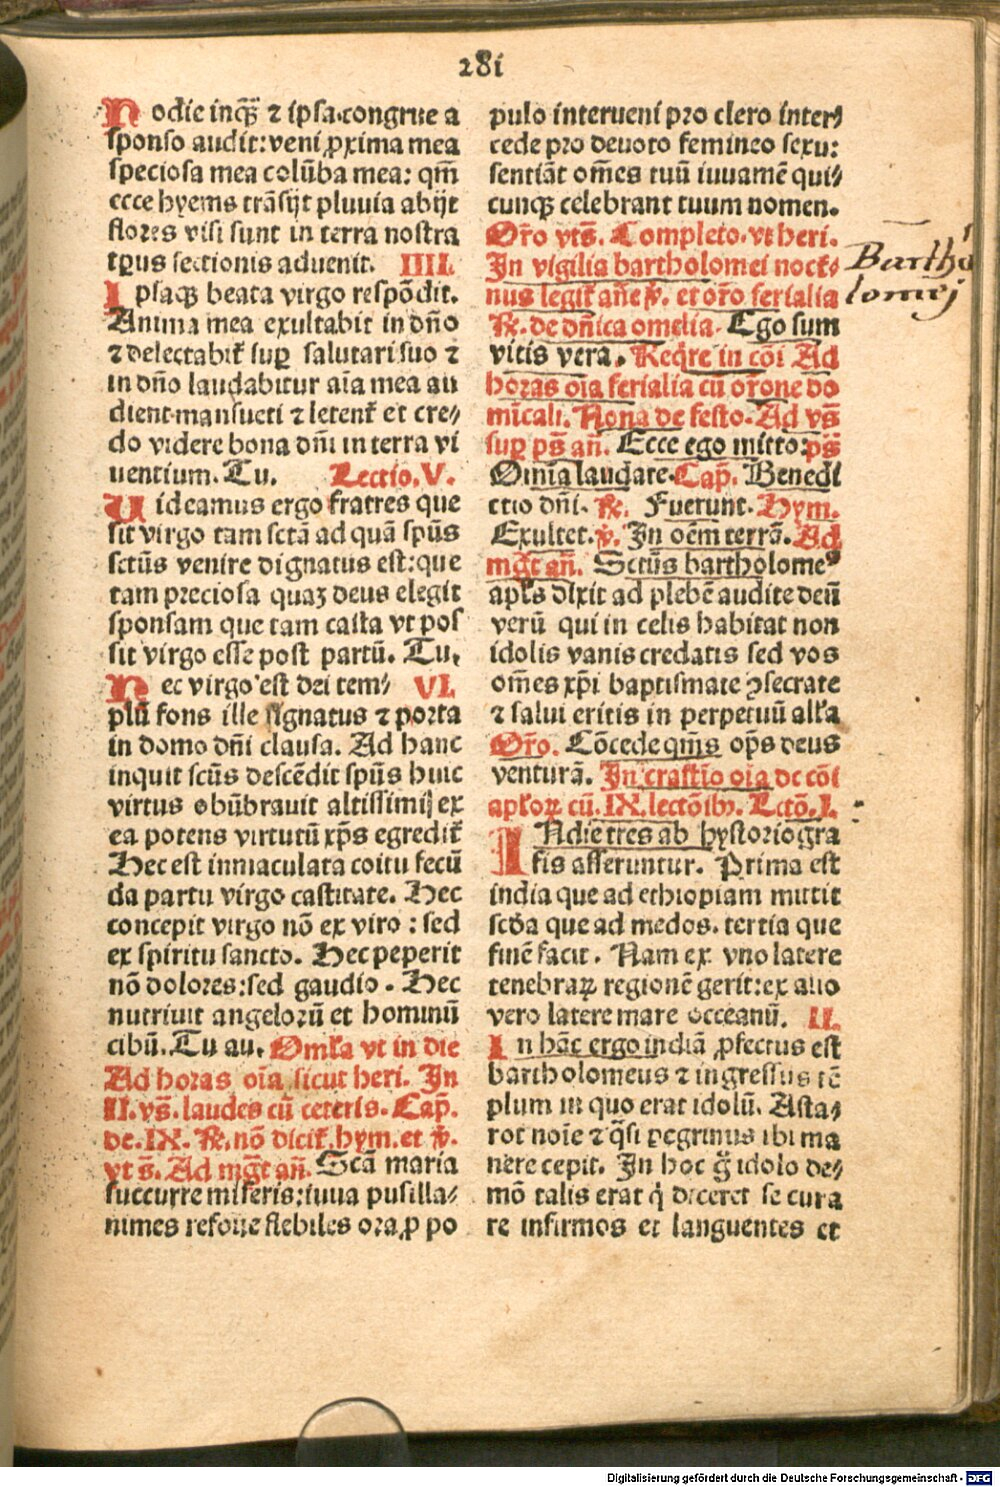 281
Hodie inqꝫ ⁊ ipsa.congrue a
sponso audit:veni ꝓxima mea
speciosa mea colūba mea: qm̄
ecce hyems trāsijt pluuia abijt
flores visi sunt in terra nostra
tꝑus sectionis aduenit. IIII.
Ipsaqꝫ beata virgo respōdit.
Anima mea exultabit in dn̄o
⁊ delectabit᷑ suꝑ salutari suo ⁊
in dn̄o laudabitur aīa mea au
dient mansueti ⁊ letent᷑ et cre⸗
do videre bona dn̄i in terra vi
uentium. Tu. Lectio. V.
Uideamus ergo fratres que
sit virgo tam sctā ad quā spūs
sctūs venire dignatus est:que
tam preciosa quaꝫ deus elegit
sponsam que tam casta vt pos
sit virgo esse post partū. Tu.
Nec virgo est dei tem⸗ VI.
plū fons ille signatus ⁊ porta
in domo dn̄i clausa. Ad hanc
inquit scūs descēdit spūs huic
virtus obūbrauit altissimi ex
ea potens virtutū xp̄s egredit᷑
Hec est inmaculata coitu fecū
da partu virgo castitate. Hec
concepit virgo nō ex viro : sed
ex spiritu sancto. Hec peperit
nō dolores:sed gaudio. Hec
nutriuit angelorū et hominū
cibū. Tu au. Omīa vt in die
Ad horas oīa sicut heri. In
II. vs̄. laudes cū ceteris. Cap̄.
de. IX. ℟. nō dicit᷑ hym. et ℣.
vt s̄. Ad mgt̄ añ. Scā maria
succurre miseris:iuua pusilla⸗
nimes refoue flebiles ora ꝓ po
pulo interueni pro clero inter⸗
cede pro deuoto femineo sexu:
sentiāt om̄es tuū iuuamē qui⸗
cunqꝫ celebrant tuum nomen.
Or̄o vts̄. Completo. vt heri.
In vigilia bartholomei noct⸗
nus legit᷑ añe ℣. et or̄o ferialia
℟. de dn̄ica omelia. Ego sum
vitis vera. Reqr̄e in cōi Ad
horas oīa ferialia cū or̄one do
mīcali. Nona de festo. Ad vs̄
suꝑ ps̄ añ. Ecce ego mitto: ps̄
Omīa laudate. Cap̄. Benedi
ctio dn̄i. ℟. Fuerunt. Hym.
Exultet. ℣. In oēm terrā. Ad
mgt̄ añ. Sctūs bartholomeꝰ
apl̄s dixit ad plebē audite deū
verū qui in celis habitat non
idolis vanis credatis sed vos
om̄es xp̄i baptismate ꝯsecrate
⁊ salui eritis in perpetuū all̄a
Or̄o. Cōcede qm̄s op̄s deus
venturā. In crastīo oīa de cōi
apl̄oꝝ cū. IX. lectōibꝫ. Lctō. I.
INdie tres ab hystoriogra
fis asseruntur. Prima est
india que ad ethiopiam mittit
scd̄a que ad medos. tertia que
finē facit. Nam ex vno latere
tenebraꝝ regionē gerit:ex alio
vero latere mare occeanū. II.
In hāc ergo indiā ꝓfectus est
bartholomeus ⁊ ingressus tē
plum in quo erat idolū. Asta⸗
rot noīe ⁊ qsi pegrinus ibi ma
nere cepit. In hoc g idolo de⸗
mō talis erat q diceret se cura
re infirmos et languentes et
Bartho
lomej
Digitalisierung gefördert durch die Deutsche Forschungsgemeinschaft - DFG